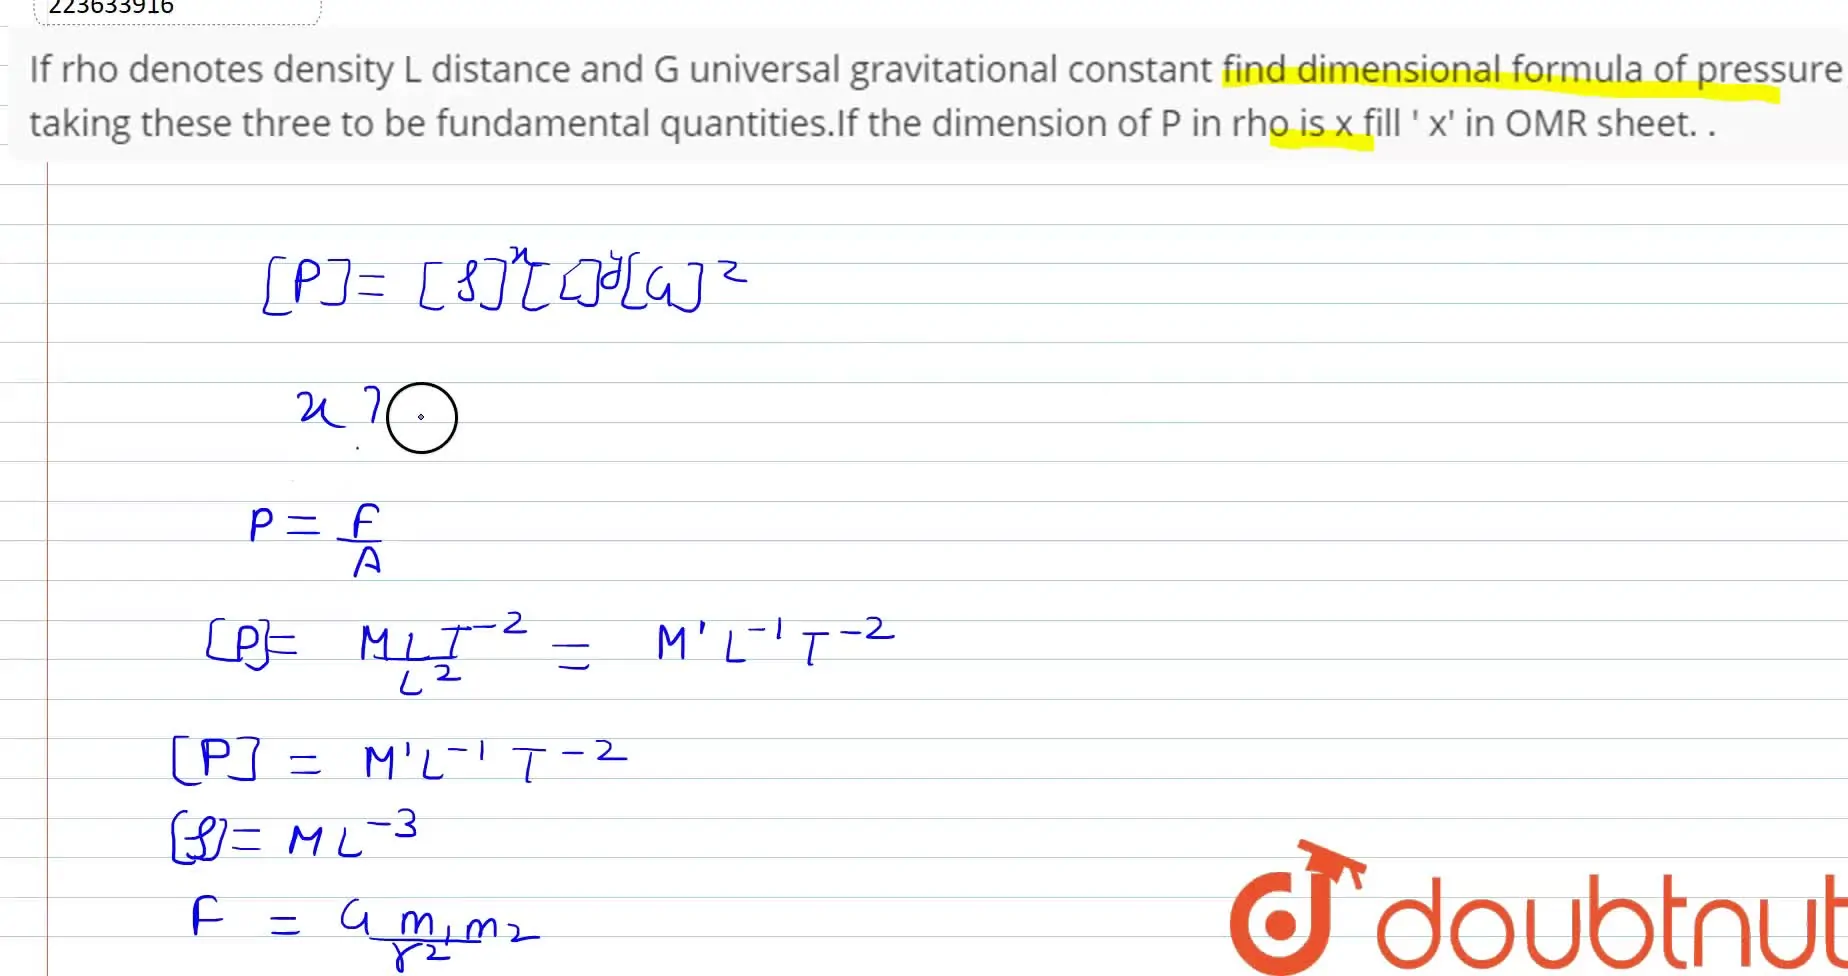 223633916
If rho denotes density L distance and G universal gravitational constant find dimensional formula of pressure
taking these three to be fundamental quantities.If the dimension of P in rho is x fill ' x' in OMR sheet. .
[P] = [ρ]ˣ[L]ʸ[G]ᶻ
x ?
P = F/A
[P] = M L T⁻² / L² = M¹ L⁻¹ T⁻²
[P] = M¹ L⁻¹ T⁻²
[ρ] = M L⁻³
F = G m₁ m₂ / r²
doubtnut